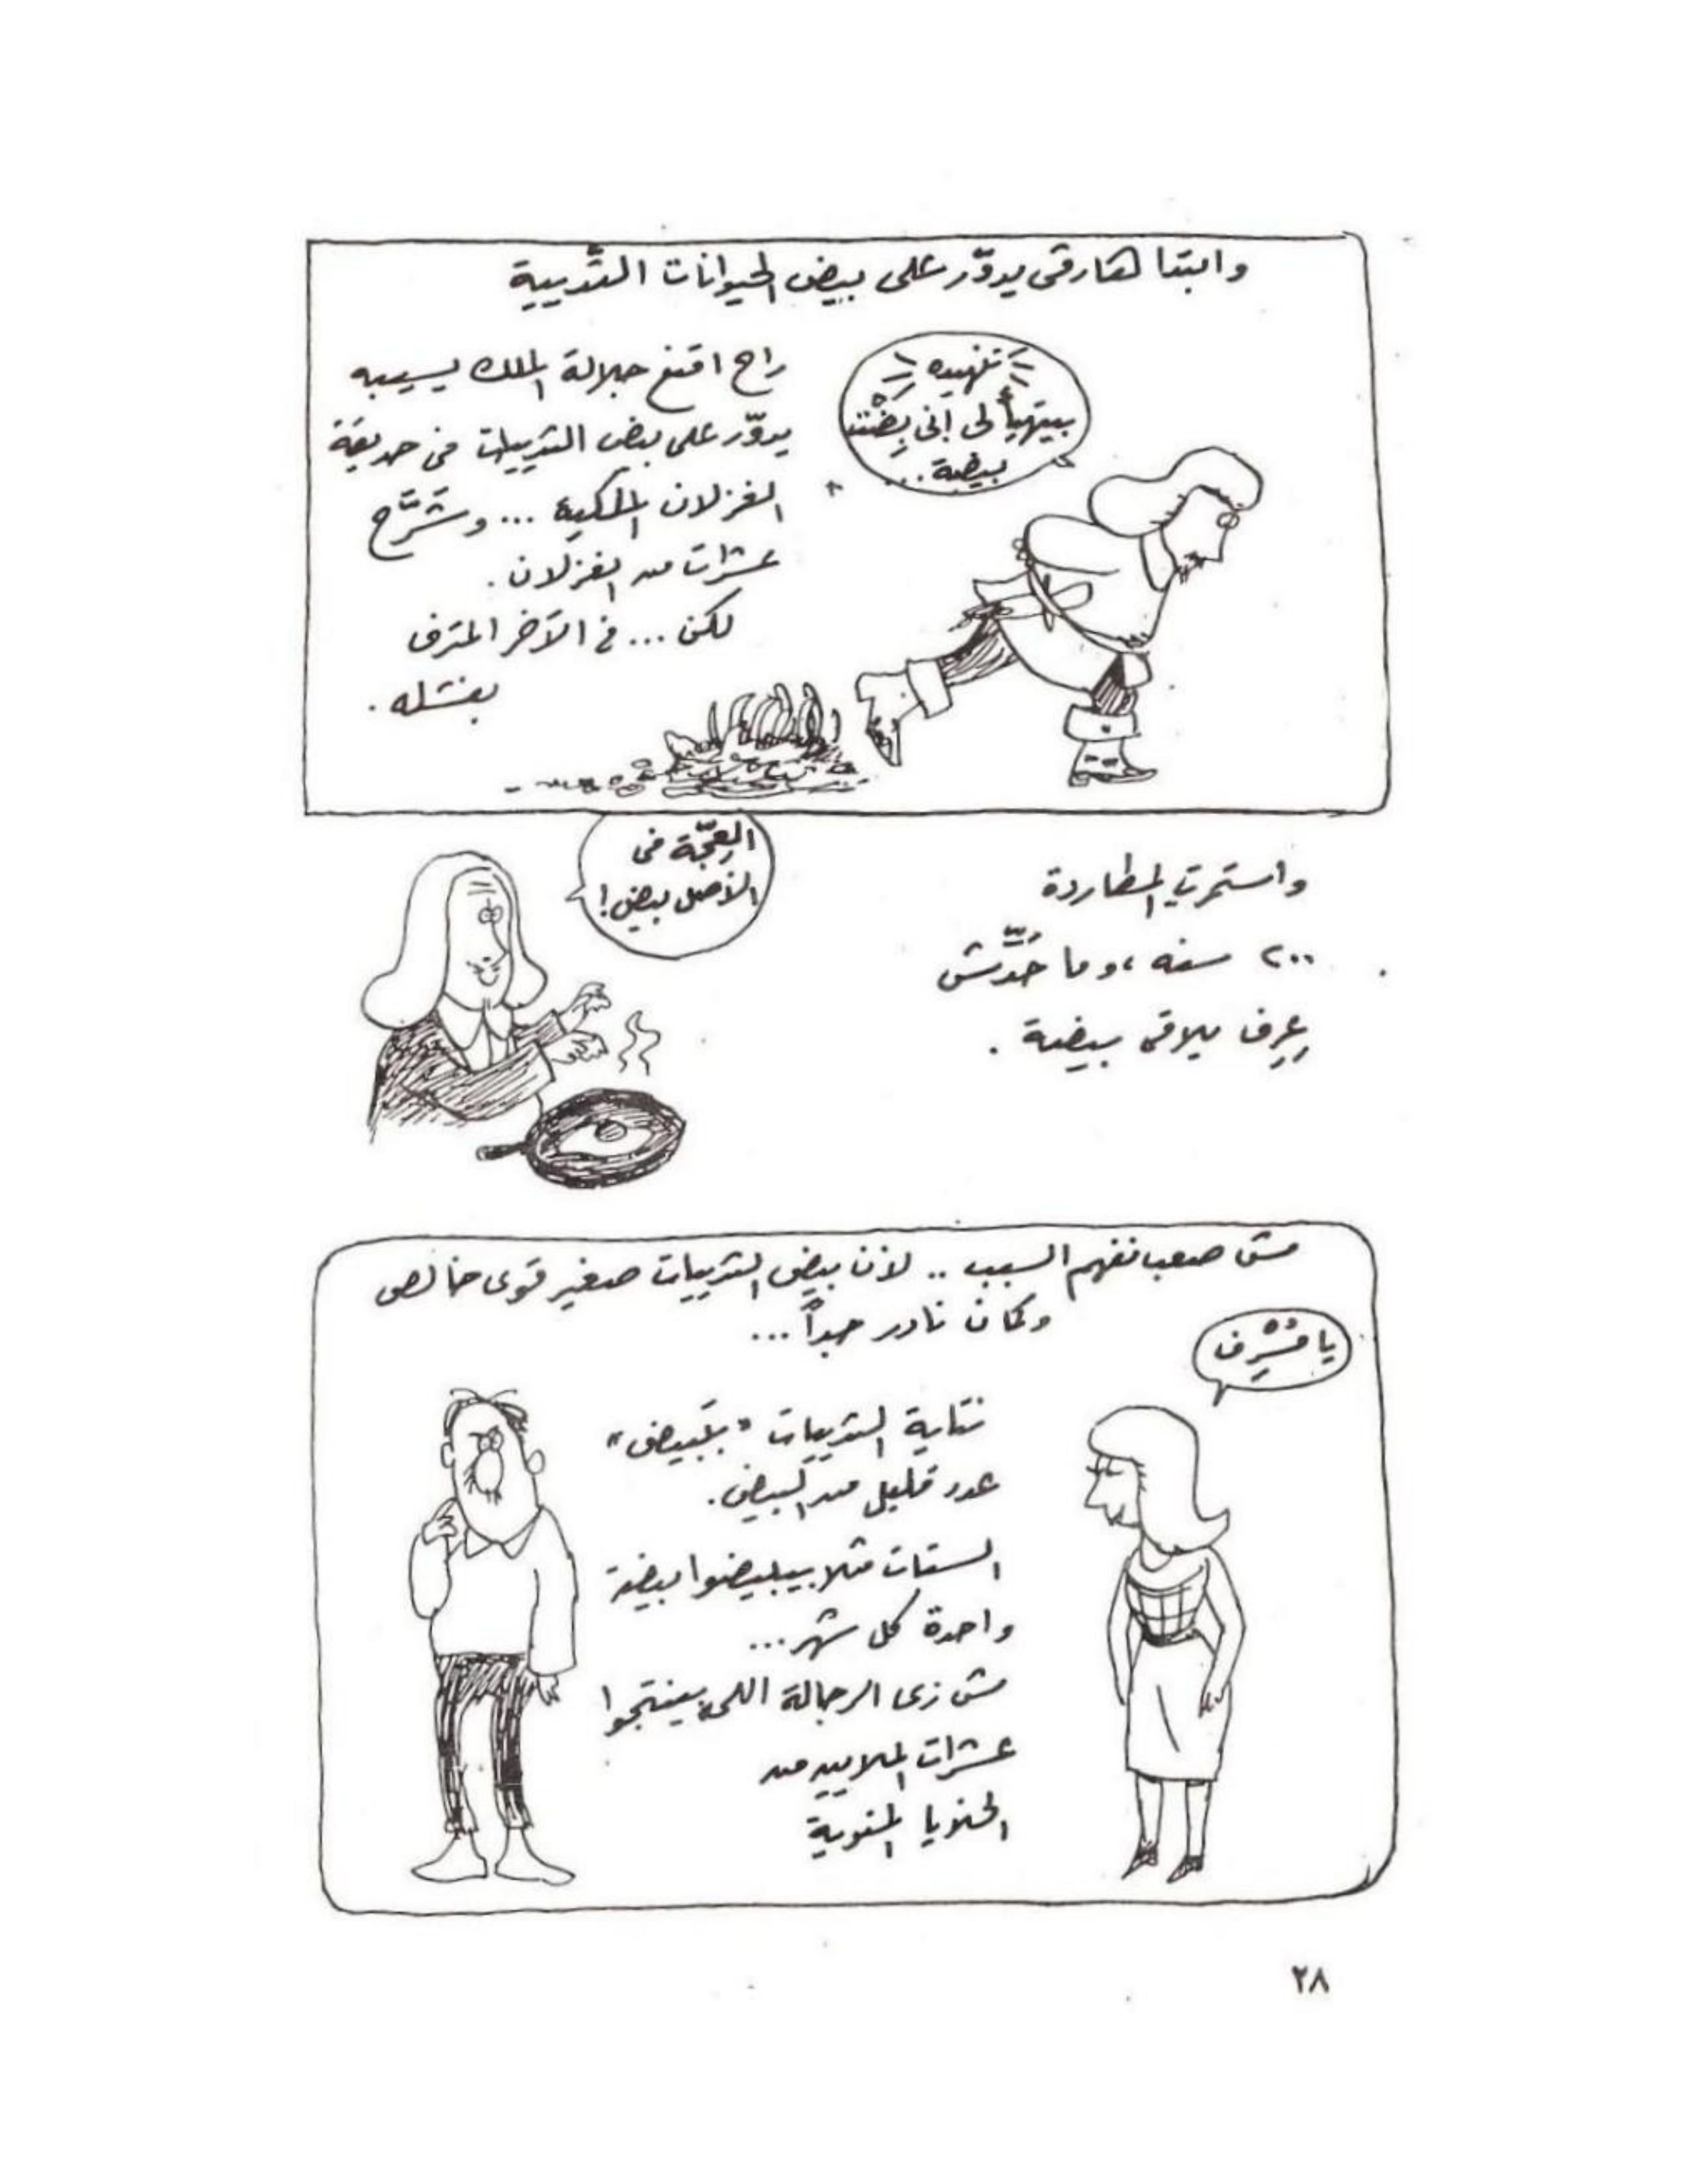 وابتدا هارفى يدوّر على بيض الحيوانات الثَّدييية
راح اقنع جلالة الملك يسيبه
يدوّر على بيض الثدييات فى حديقة
الغزلان الملكية ... وشَرَّح
عشرات من الغزلان .
لكن ... فى الآخر اعترف
بفشله .
تنهيده
بيتهيأ لى إنى بِضْت
بيضة ...
العِجَّة فى
الأصل بيض !
واستمرت المطاردة
٢٠٠ سنه ، وما حَدِّش
عِرِف يلاقى بيضة .
مش صعب نفهم السبب .. لأن بيض الثدييات صغير قوى خالص
وكمان نادر جداً ...
يا مُشْرِف
نتاية الثدييات " بتبيض "
عدد قليل من البيض .
الستات مثلا بيبيضوا بيضة
واحدة كل شهر ...
مش زى الرجالة اللى بينتجوا
عشرات الملايين من
الخلايا المنوية
٢٨